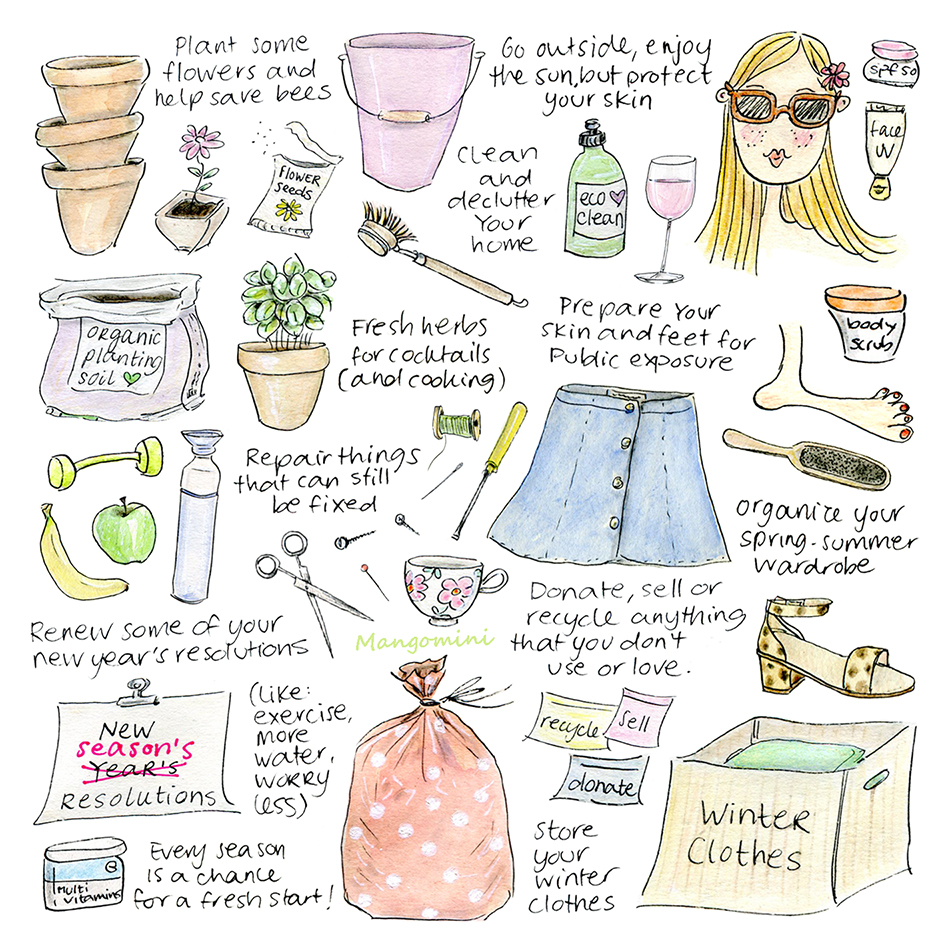 Plant some
flowers and
help save bees
FLOWER
seeds
Go outside, enjoy
the sun, but protect
your skin
spf 50
face
UV
Clean
and
declutter
your
home
eco
clean
organic
planting
soil
Fresh herbs
for cocktails
(and cooking)
Prepare your
skin and feet for
public exposure
body
scrub
Repair things
that can still
be fixed
organize your
spring-summer
wardrobe
Renew some of your
new year's resolutions
Mangomini
Donate, sell or
recycle anything
that you don't
use or love.
New
season's
Year's
Resolutions
(Like:
exercise,
more
water,
worry
less)
recycle
sell
donate
Winter
Clothes
Multi
vitamins
Every season
is a chance
for a fresh start!
store
your
winter
clothes